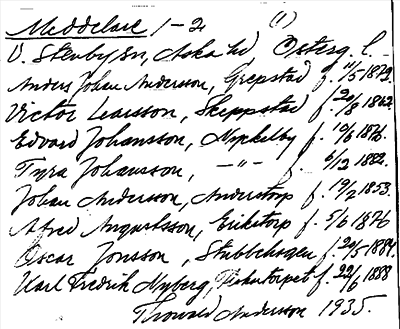 Meddelare 1-2 (1)
V. Stenby sn, Aska hd Österg. l.
Anders Johan Andersson, Grepstad f. 11/5 1872.
Victor Larsson, Skeppstad f. 20/8 1862.
Edvard Johansson, Nyckelby f. 10/6 1876.
Tyra Johansson, -"- f. 6/12 1882.
Johan Andersson, Anderstorp f. 19/2 1853.
Alfred Augustsson, Erikstorp f. 5/6 1876
Oscar Jonsson, Stubbehagen f. 20/5 1884.
Karl Fredrik Nyberg, f. 22/6 1888
Thorvald Andersson 1935.